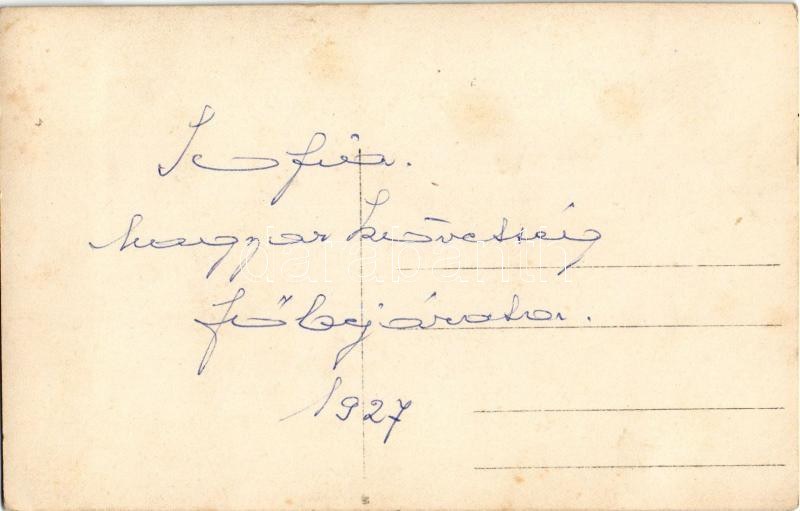 Sofia.
Magyar követség
főbejárata.
1927